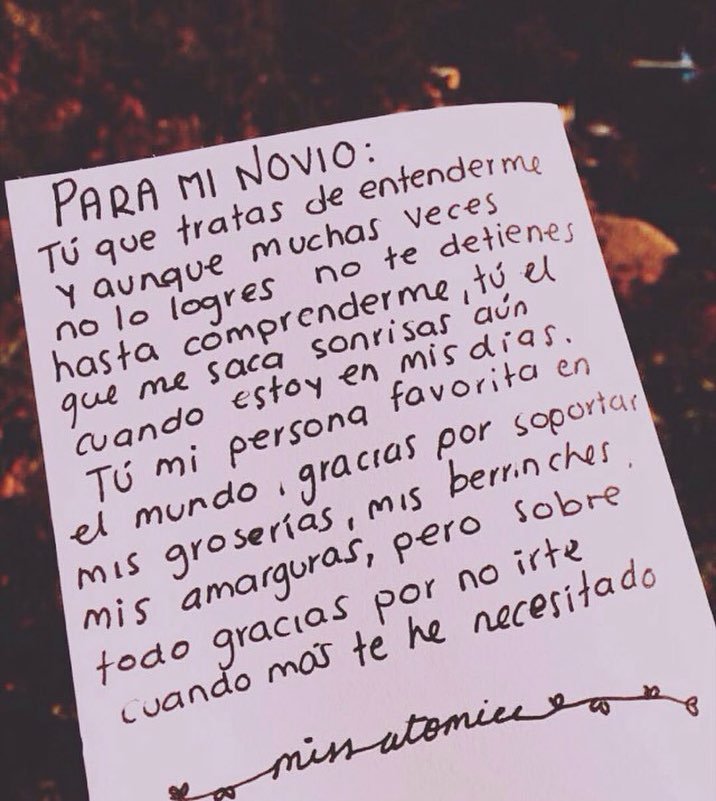 PARA MI NOVIO:
Tú que tratas de entenderme
y aunque muchas veces
no lo logres no te detienes
hasta comprenderme, tú el
que me saca sonrisas aún
cuando estoy en mis días.
Tú mi persona favorita en
el mundo, gracias por soportar
mis groserías, mis berrinches.
mis amarguras, pero sobre
todo gracias por no irte
cuando más te he necesitado
miss atomicc